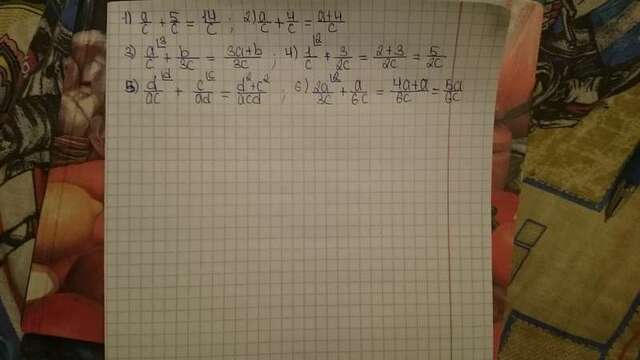 1) 9/c + 5/c = 14/c ; 2) a/c + 4/c = a+4/c
3) a/c |3 + b/3c = 3a+b/3c ; 4) 1/c |2 + 3/2c = 2+3/2c = 5/2c
5) d/ac |d + c/ad |c = d²+c²/acd ; 6) 2a/3c |2 + a/6c = 4a+a/6c = 5a/6c